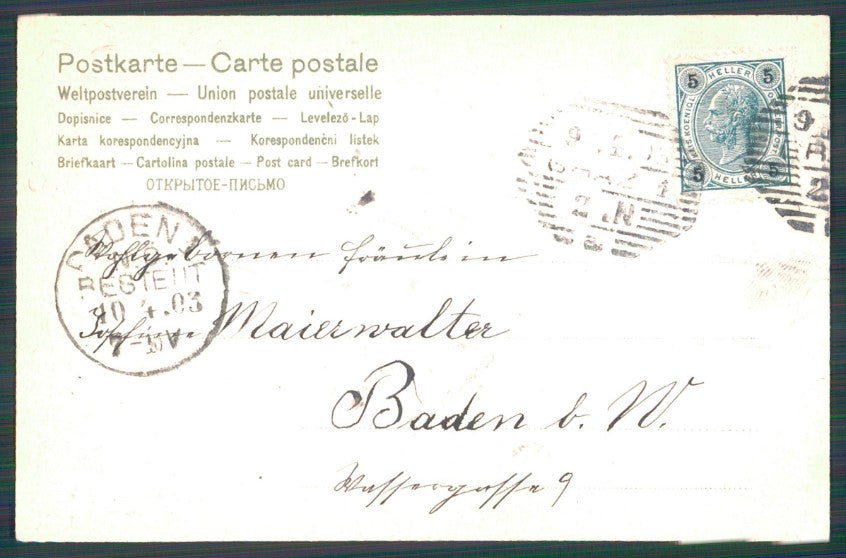 Postkarte — Carte postale
Weltpostverein — Union postale universelle
Dopisnice — Correspondenzkarte — Levelező-Lap
Karta korespondencyjna — Korespondenčni listek
Briefkaart — Cartolina postale — Post card — Brefkort
ОТКРЫТОЕ-ПИСЬМО
5 HELLER 5
5 HELLER 5
9
2.N
9
2
BADEN
BESTELLT
10 4.03
Wohlgeboornen Fräulein
Josefine Maierwalter
Baden b. W.
Wassergasse 9